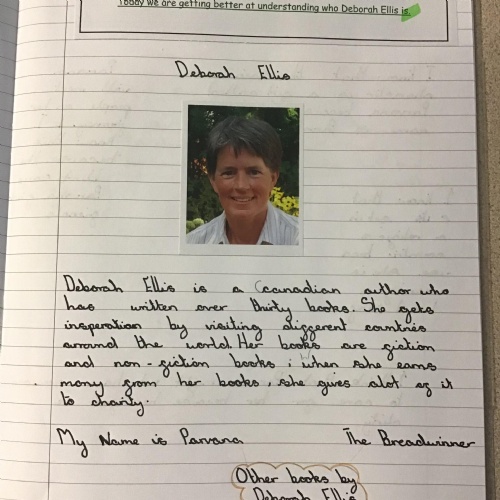 Today we are getting better at understanding who Deborah Ellis is.
Deborah Ellis
Deborah Ellis is a canadian author who
has written over thirty books. She gets
insperation by visiting different countries
arround the world. Her books are fiction
and non-fiction books ; when she earns
money from her books, she gives alot of it
to charity.
My Name is Parvana The Breadwinner
Other books by
Deborah Ellis